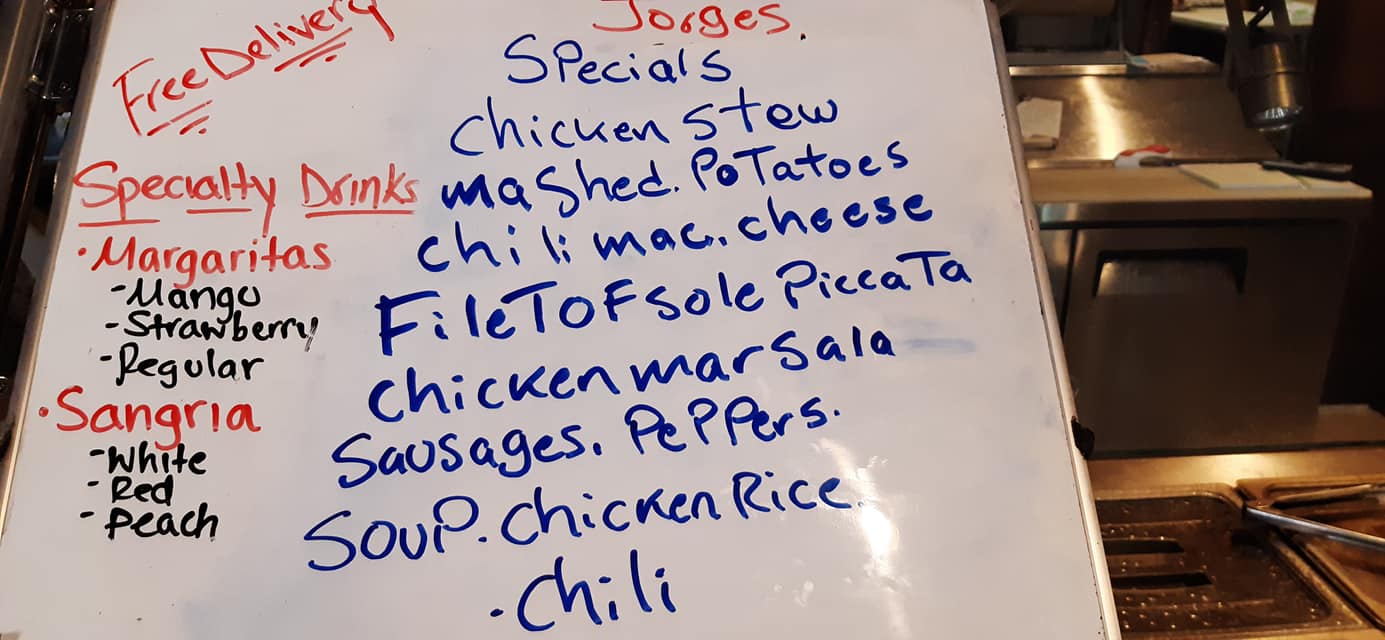 Free Delivery
Specialty Drinks
·Margaritas
-Mango
-Strawberry
-Regular
·Sangria
-White
-Red
-Peach
Jorges.
Specials
Chicken Stew
mashed. Potatoes
chili mac. cheese
FileTOF sole PiccaTa
chicken marsala
Sausages. PePPers.
Soup. Chicken Rice.
·Chili